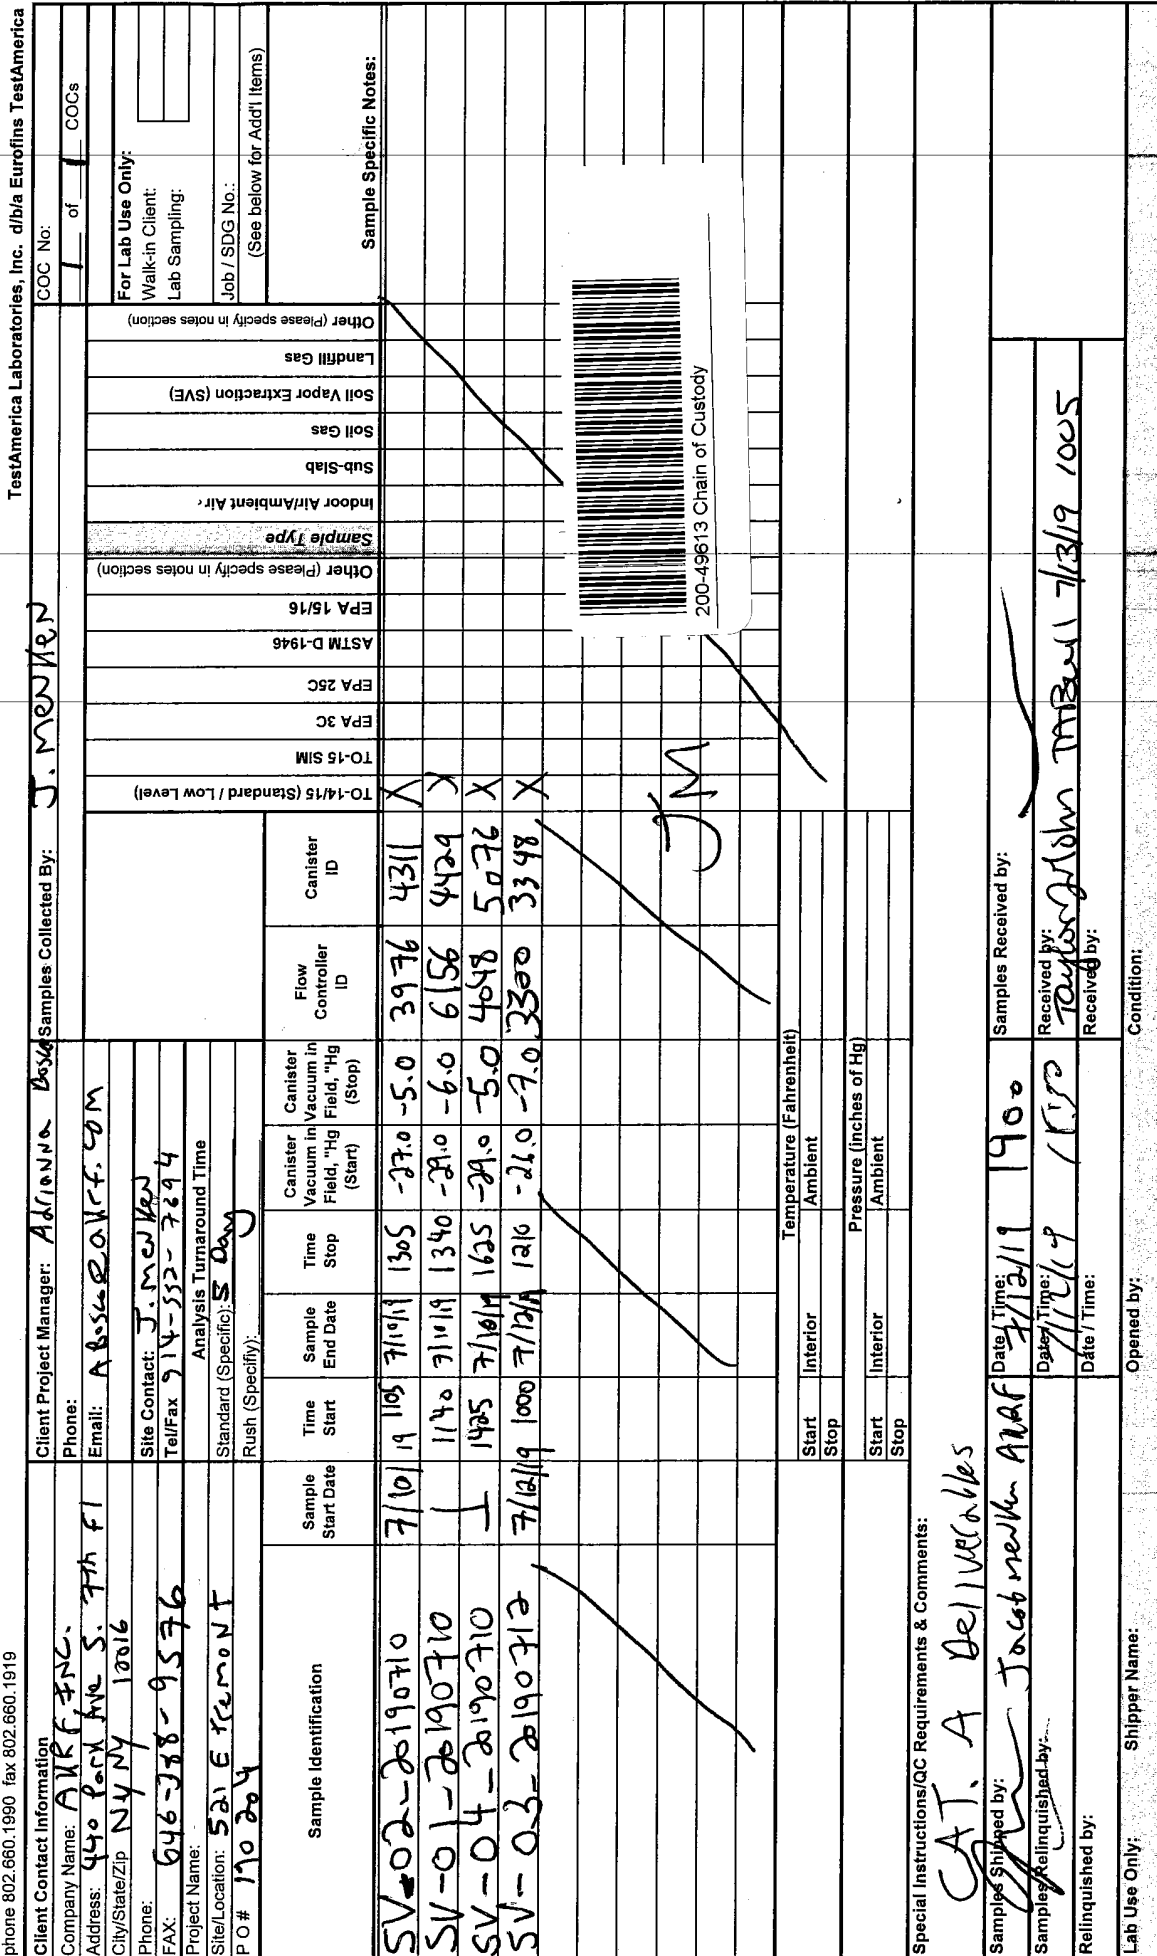 TestAmerica Laboratories, Inc. d/b/a Eurofins TestAmerica
phone 802.660.1990 fax 802.660.1919
Client Contact Information
Company Name: AKRF, INC.
Address: 440 Park Ave S. 7th Fl
City/State/Zip NY NY 10016
Phone:
FAX: 646-388-9576
Project Name:
Site/Location: 521 E Tremont
P O # 190204
Client Project Manager: Adrianna Bosco
Phone:
Email: ABosco@akrf.com
Site Contact: J. Menken
Tel/Fax 914-552-7694
Analysis Turnaround Time
Standard (Specific): 5 Day
Rush (Specifiy):
Samples Collected By: J. Menken
COC No:
1 of 1 COCs
For Lab Use Only:
Walk-in Client:
Lab Sampling:
Job / SDG No.:
(See below for Add'l Items)
Sample Identification
Sample Start Date
Time Start
Sample End Date
Time Stop
Canister Vacuum in Field, "Hg (Start)
Canister Vacuum in Field, "Hg (Stop)
Flow Controller ID
Canister ID
TO-14/15 (Standard / Low Level)
TO-15 SIM
EPA 3C
EPA 25C
ASTM D-1946
EPA 15/16
Other (Please specify in notes section)
Sample Type
Indoor Air/Ambient Air
Sub-Slab
Soil Gas
Soil Vapor Extraction (SVE)
Landfill Gas
Other (Please specify in notes section)
Sample Specific Notes:
SV-02-20190710 7/10/19 1105 7/10/19 1305 -27.0 -5.0 3976 4311 X
SV-01-20190710 1140 7/10/19 1340 -29.0 -6.0 6156 4429 X
SV-04-20190710 1425 7/10/19 1625 -29.0 -5.0 4048 5076 X
SV-03-20190712 7/12/19 1000 7/12/19 1210 -26.0 -7.0 3300 3348 X
JM
200-49613 Chain of Custody
Temperature (Fahrenheit)
Interior Ambient
Start
Stop
Pressure (inches of Hg)
Interior Ambient
Start
Stop
Special Instructions/QC Requirements & Comments:
CAT. A Deliverables
Samples Shipped by: Jacob Menken AKRF
Date / Time: 7/12/19 1400
Samples Received by:
Samples Relinquished by:
Date / Time: 7/12/19
Received by: Taylor John TABurl 7/13/19 1005
Relinquished by:
Date / Time:
Received by:
Lab Use Only:
Shipper Name:
Opened by:
Condition: